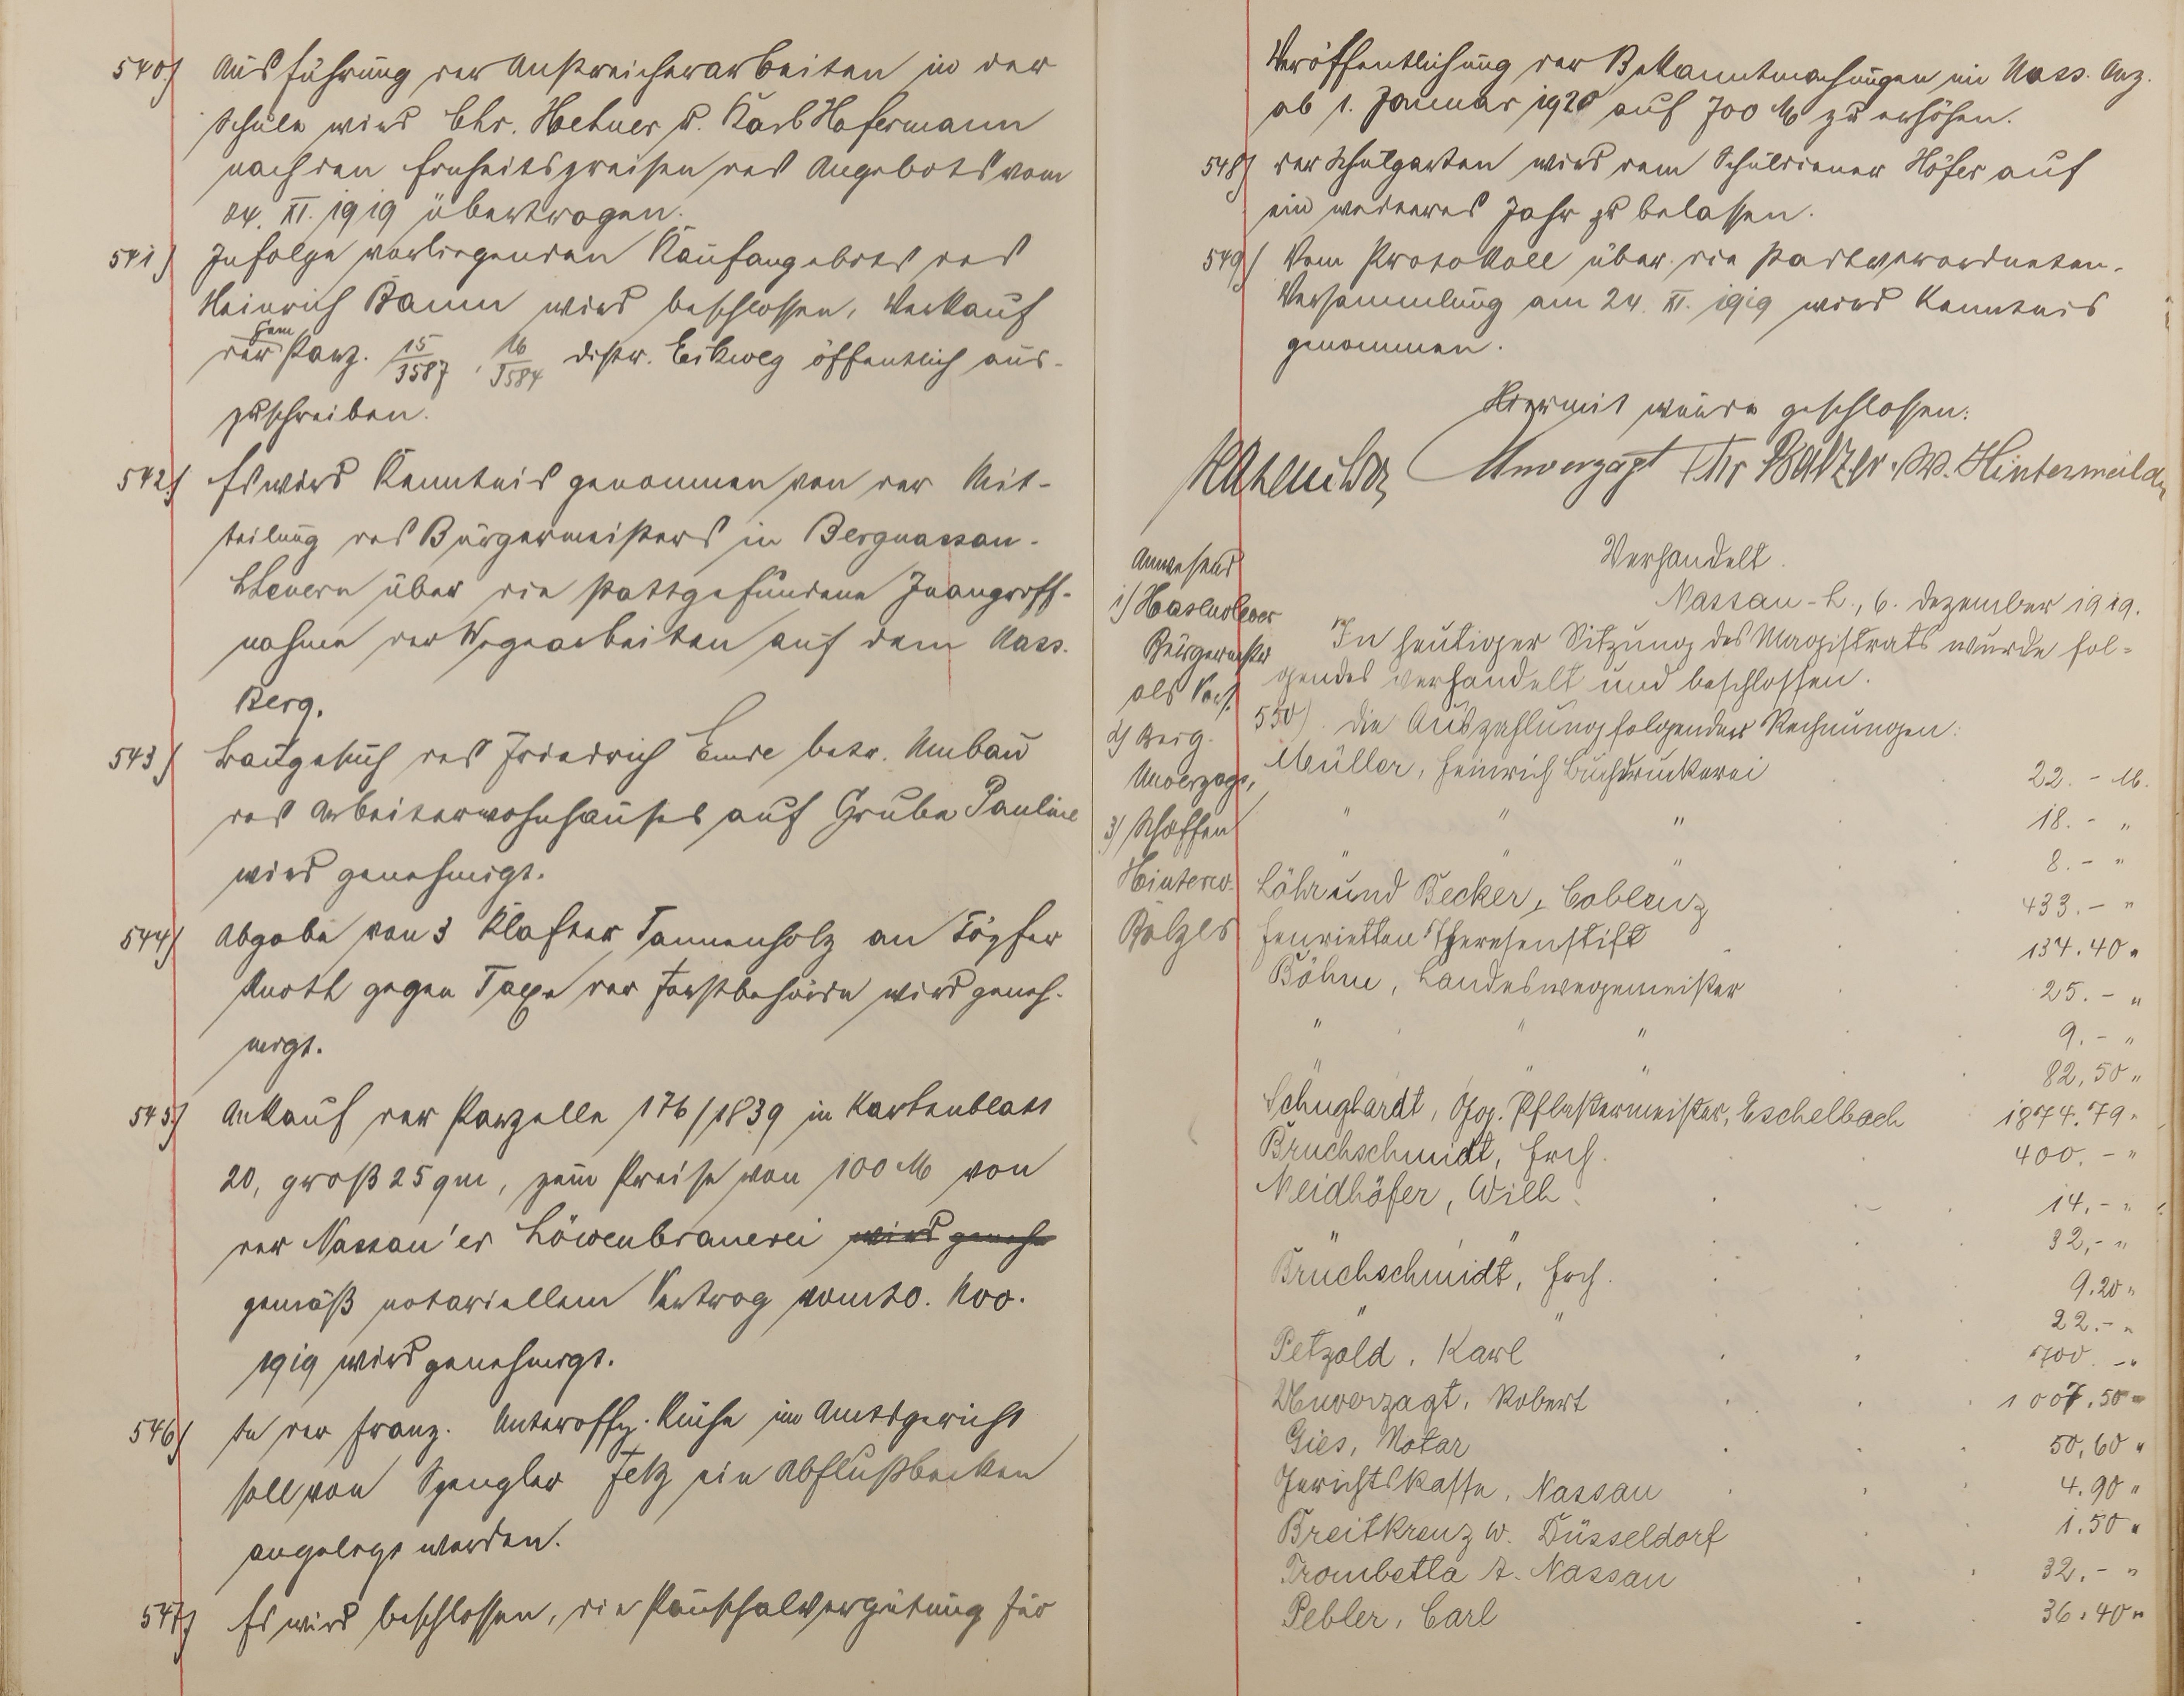 540.) Ausführung der Anstreicherarbeiten in der
Schule wird Chr. Hetner u. Karl Hofermann
nach den Einheitspreisen des Angebots vom
24. XI. 1919 übertragen.
541) Infolge vorliegenden Kaufangebots des
Heinrich Baum wird beschlossen, Verkauf
der Parz. 15/3587, 16/3584 distr. öffentlich aus-
zuschreiben.
542.) Es wird Kenntnis genommen von der Mit-
teilung des Bürgermeisters in Bergnassau-
Scheuern über die stattgefundene Inangriff-
nahme der Wegearbeiten auf dem Nass.
Berg.
543) Baugesuch des Friedrich Emde betr. Umbau
des Arbeiterwohnhauses auf Grube Pauline
wird genehmigt.
544) Abgabe von 3 Klafter Tannenholz an Töpfer
Knoth gegen Taxe der Forstbehörde wird geneh-
migt.
545.) Ankauf der Parzelle 176/1839 in Kartenblatt
20, groß 25 qm, zum Preise von 100 M von
der Nassau'er Löwenbrauerei wird geneh
gemäß notariellem Vertrag vom 20. Nov.
1919 wird genehmigt.
546) In der franz. Unteroffz. Küche im Amtsgericht
soll von Spengler ein Abflußbecken
angelegt werden.
547) Es wird beschlossen, die Pauschalvergütung für
Veröffentlichung der Bekanntmachungen im Nass. Anz.
ab 1. Januar 1920 auf 700 M zu erhöhen.
548) der Schulgarten wird dem Schuldiener Höfer auf
ein weiteres Jahr zu belassen.
549) Vom Protokoll über die Stadtverordneten-
Versammlung am 24. XI. 1919 wird Kenntnis
genommen.
Hiermit wurde geschlossen:
Hasenclever Unverzagt Chr Balzer W. Hinterwälder
Anwesend
1) Hasenclever
Bürgermeister
als Vors.
2) Beig.
Unverzagt,
3) Schöffen
Hinterw.
Balzer
Verhandelt.
Nassau-L., 6. Dezember 1919.
In heutiger Sitzung des Magistrats wurde fol-
gendes verhandelt und beschlossen.
550). Die Auszahlung folgender Rechnungen:
Müller, Heinrich Buchdruckerei 22.- M.
" " " 18.- "
" " " 8.- "
Löhr und Becker, Coblenz 433.- "
Henrietten Theresenstift 134.40 "
Böhm, Landeswegemeister 25.- "
" " " 9.- "
" " " 82,50 "
Schughardt, Gg. Pflastermeister, Eschelbach 1874.79 "
Bruchschmidt, Hch. 400.- "
Neidhöfer, Wilh. 14,- "
" " 32,- "
Bruchschmidt, Hch. 9.20 "
" " 22.- "
Petzold, Karl 700.- "
Unverzagt, Robert 1007.50 "
Gies, Notar 50,60 "
Gerichtskasse, Nassau 4.90 "
Breitkreuz W. Düsseldorf 1.50 "
Trombetta A. Nassau 32.- "
Pebler, Carl 36.40 "